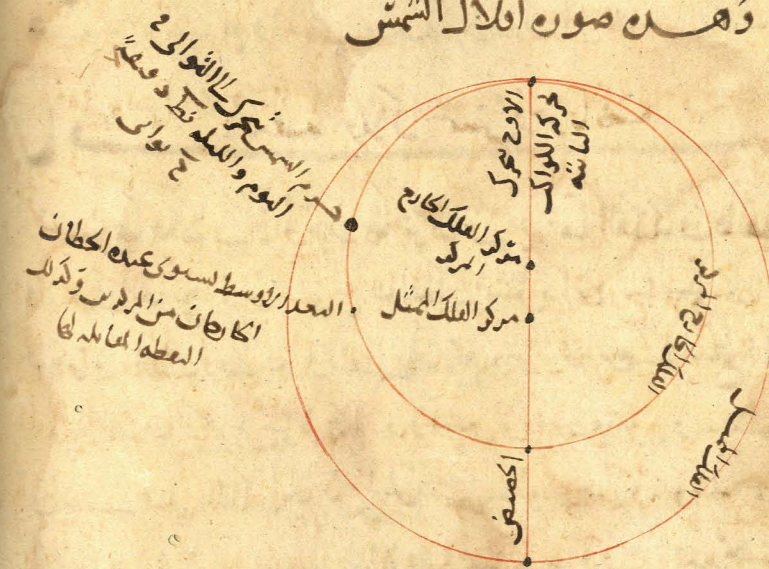 وهذه صورة افلاك الشمس
جرم الشمس يتحرك الى التوالى فى
اليوم والليلة نط دقيقة
ح ثوانى
الاوج يتحرك
بحركة الكواكب
الثابتة
مركز الفلك الخارج
المركز
مركز الفلك الممثل
البعد الاوسط يستوى عنده الخطان
الخارجان من المركزين وكذلك
النقطة المقابلة لها
الفلك الخارج المركز
الفلك الممثل
الحضيض